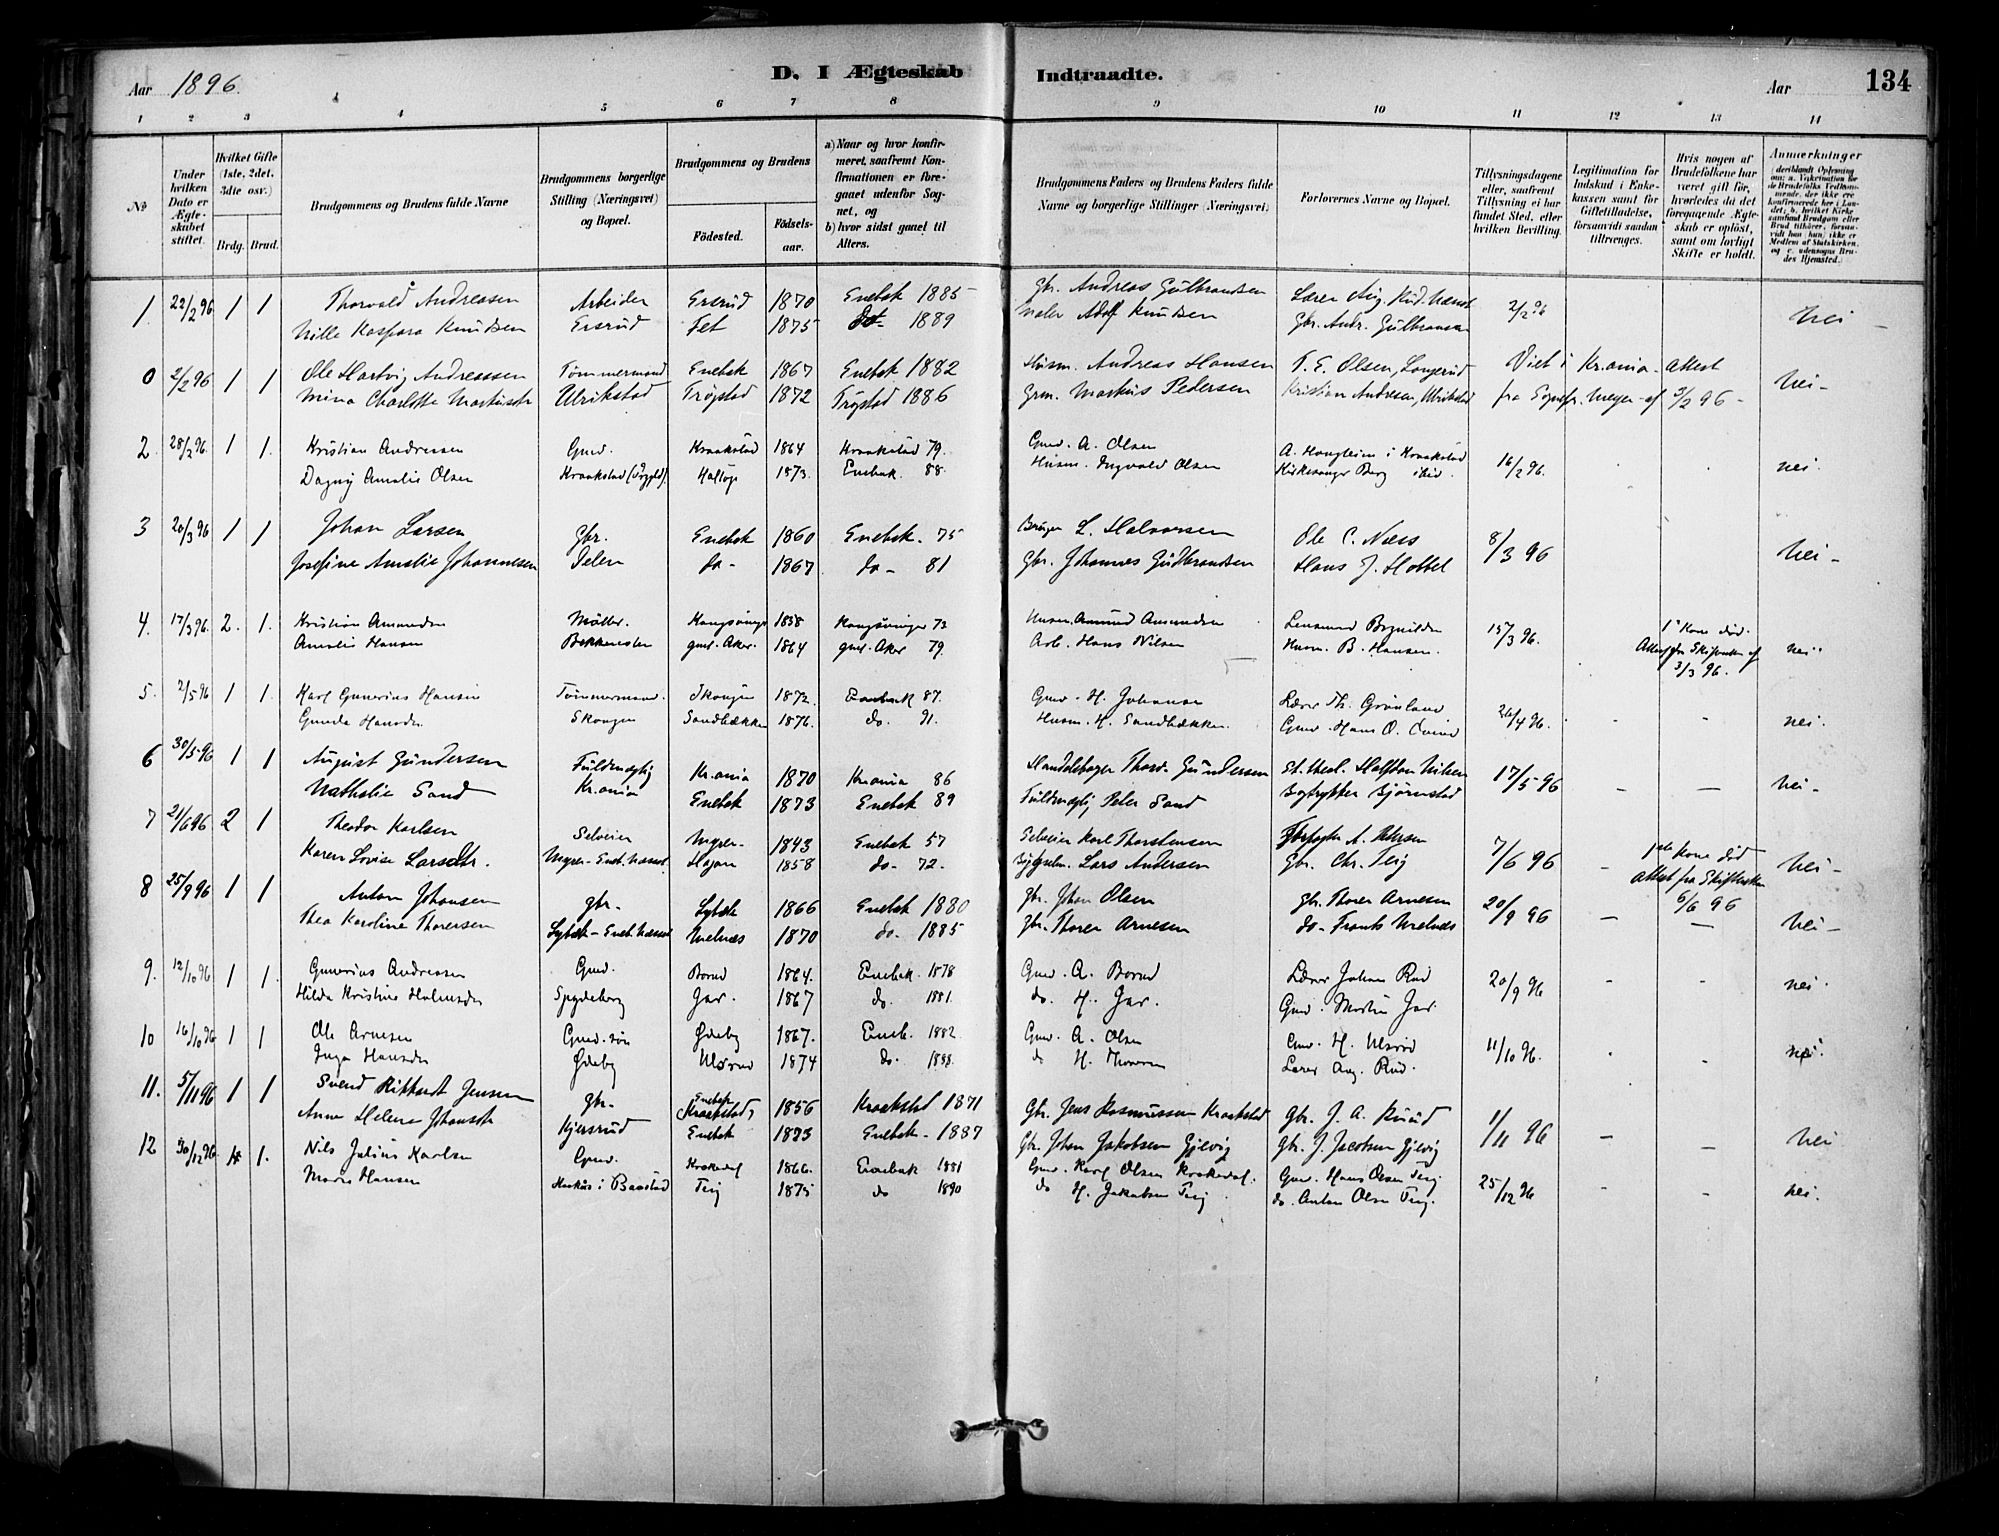 Aar 1896.
D. I Ægteskab Indtraadte.
Aar
134
1 2 3 4 5 6 7 8 9 10 11 12 13 14
No
Under hvilken Dato er Ægteskabet stiftet.
Hvilket Gifte (1ste, 2det, 3die osv.)
Brdg. Brud.
Brudgommens og Brudens fulde Navne
Brudgommens borgerlige Stilling (Næringsvei) og Bopæl.
Brudgommens og Brudens
Födested. Födsels-aar.
a) Naar og hvor konfirmeret, saafremt Konfirmationen er foregaaet udenfor Sognet, og
b) hvor sidst gaaet til Alters.
Brudgommens Faders og Brudens Faders fulde Navne og borgerlige Stillinger (Næringsvei)
Forlovernes Navne og Bopæl.
Tillysningsdagene eller, saafremt Tillysning ei har fundet Sted, efter hvilken Bevilling.
Legitimation for Indskud i Enkekassen samt for Giftetilladelse, forsaavidt saadan tiltrænges.
Hvis nogen af Brudefolkene har været gift för, hvorledes da det foregaaende Ægteskab er oplöst, samt om lovligt Skifte er holdt.
Anmærkninger
1. 22/2 96 1 1 Thorvald Andreasen Arbeider Ersrud 1870 Enebak 1885 Gbr. Andreas Gulbrandsen Lærer Aug. Rud. 2/2 96 Nei
Nille Kaspara Knudsen Ersrud Fet 1875 do 1889 Maler Adolf Knudsen Gbr. Andr. Gulbransen
0 2/2 96 1 1 Ole Hartvig Andreassen Tømmermand Enebak 1867 Enebak 1882 Husm. Andreas Hansen T. E. Olsen, Langerud Viet i Kr.ania - attest Nei-
Mina Charlotte Markusdtr Ulrikstad Trögstad 1872 Trögstad 1886 Grm. Markus Pedersen Kristian Andresen, Ulrikstad fra Sognepr. Meyer af 3/2 96 -
2. 28/2 96. 1 1. Kristian Andresen Gmd. Kraakstad 1864 Kraakstad 79. Gmd. A. Olsen A. Haugheim i Kraakstad 16/2 96. nei.
Dagny Amalie Olsen Kraakstad Holtop 1873. Enebak. 88. Husm. Ingvald Olsen Kirkesanger Berg ibid.
3 20/3 96 1 1 Johan Larsen Gbr. Enebak 1860 Enebak. 75 L. Halvorsen Ole C. Næss 8/3 96 Nei-
Josefine Amalie Johannesen do- 1867 do- 81 Gbr. Johannes Gudbrandsen Hans J. Hottel
4. 17/3 96. 2. 1. Kristian Amundsen Møller. Kongsvinger 1858 Kongsvinger 73 Husm. Amund Amundsen Lensmand 15/3 96. 1e Kone död. nei.
Amalie Hansen gml. Aker. 1864 gml. Aker 79. Arb. Hans Nilsen Husm. B. Hansen. 3/3 96.
5. 2/5 96 1 1. Karl Gunerius Hansen Tømmermand. Skougen 1872. Enebak 87. Gmd. H. Johansen Lærer Th. Grønlund 26/4 96. nei.
Gunda Hansdtr Skougen Sandbækken 1876. do. 91. Husm. H. Sandbækken. Gmd. Hans O.
6 30/5 96 1 1 August Gundersen Fuldmegtig Kr.ania 1870 Kr.ania 86 Thord. Gundersen St. theol. Halfdan Nilsen 17/5 96 Nei-
Nathalie Sand Kr.ania Enebak 1873 Enebak 89 Fuldmegtig Peter Sand Bogtrykker Bjørnstad
7 21/6 96 2 1 Theodor Karlsen Selveier Myrer- 1843 Enebak 57 Selveier Karl Thorstensen A. Petersen 7/6 96 1ste Kone död Nei-
Karen Lovise Larsdtr. Myrer- Hagan 1858 do- 72. Lars Andersen Gbr. Chr. Teig attest fra Skifteretten 6/6 96
8 25/9 96 1 1 Anton Johansen gbr. 1866 Enebak 1880 gbr. Johan Olsen gbr. Thorer Arnesen 20/9 96 Nei-
Thea Karoline Thorersen Melnæs 1870 do- 1885 gbr. Thorer Arnesen do- Frants Melnæs
9. 12/10 96 1 1. Gunerius Andreasen Gmd. Borud 1864. Enebak. 1878 Gmd. A. Borud Lærer Johan Rud 20/9 96 nei.
Hilda Kristine Halvorsdtr Spydeberg Jar. 1867 do. 1881. do. H. Jar. Gmd. Martin Jar
10 16/10 96. 1 1 Ole Arnesen Gmd. søn Ødeby 1867. Eneb. 1882 Gmd. A. Olsen Gmd. H. Ulsrød 11/10 96. nei.
Inga Hansdtr Ødeby Ulsrud 1874 do. 1888. do H. Lærer Aug. Rud.
11. 5/11 96 1 1 Svend Rikhart Jensen gbr. Kraakstad 1856 Kraakstad 1871 Gbr. Jens Rasmussen Kraakstad Gbr. J. A. Ruud 1/11 96 Nei
Anne Helene Johansdtr Kjersrud Enebak 1873 Enebak- 1887 Gbr. Johan Jakobsen Gjelvig Gbr. J. Jacobsen Gjelvig
12 30/12 96 1. Nils Julius Karlsen Gmd. Krokedal 1866. Enebak 1881 Gmd. Karl Olsen Krokedal. Gmd. Hans Olsen Teig 25/12 96 nei.
Maren Hansen Baastad Teig 1875 do 1890 do H. Jakobsen Teig do. Anton Olsen Teig.